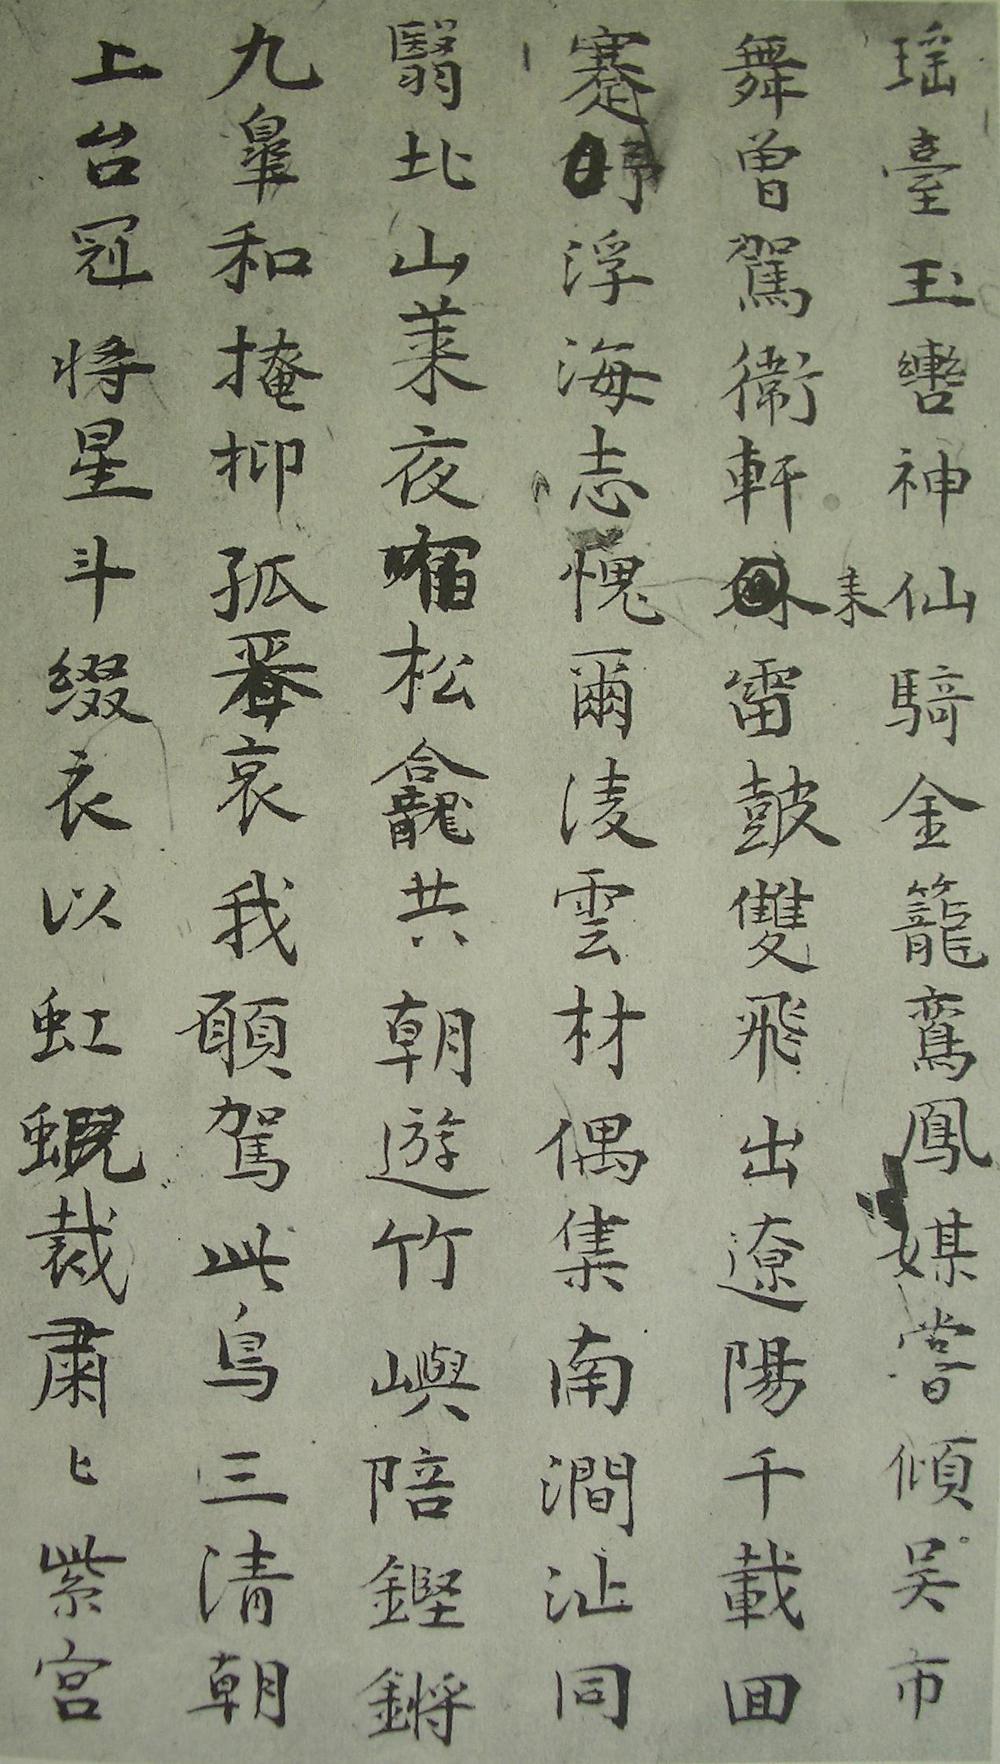 瑶臺玉轡神仙騎金籠鸞鳳媒嘗傾吴市
舞曽駕衛軒来雷鼓雙飛出遼陽千載回
蹇浮海志愧爾凌雲材偶集南澗沚同
翳北山萊夜宿松龕共朝遊竹嶼陪鏗鏘
九皐和掩抑孤番哀我願駕此鳥三清朝
上台冠将星斗綴衣以虹蜺裁肅〻紫宫